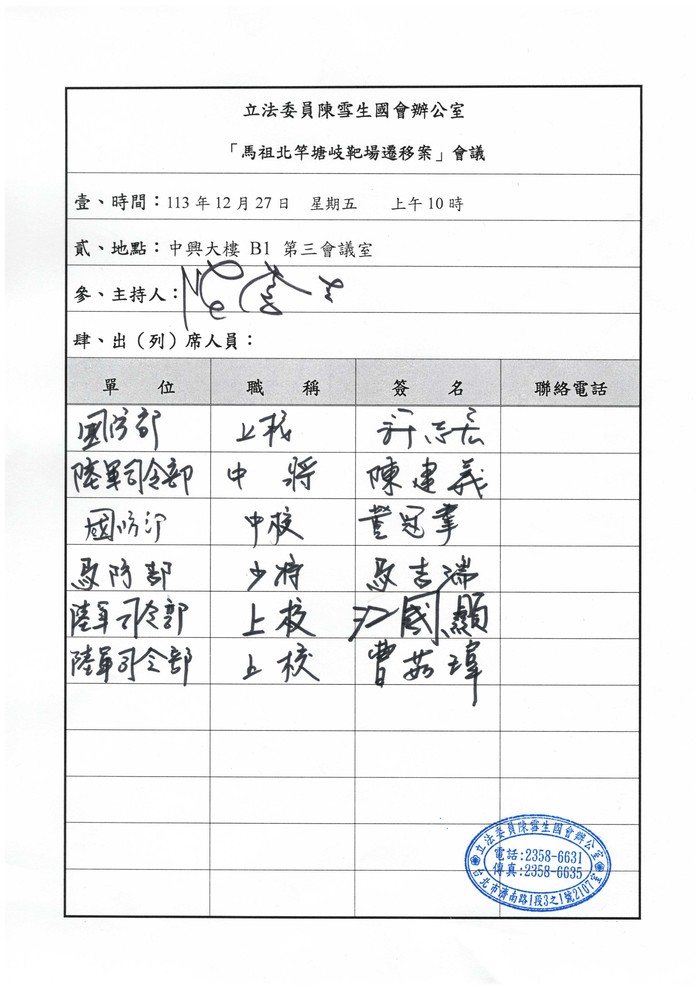 立法委員陳雪生國會辦公室
「馬祖北竿塘岐靶場遷移案」會議
壹、時間：113 年 12 月 27 日 星期五 上午 10 時
貳、地點：中興大樓 B1 第三會議室
參、主持人：
肆、出（列）席人員：
單 位 職 稱 簽 名 聯絡電話
國防部 上校
陸軍司令部 中 將 陳建義
國防部 中校 冠羣
馬防部 少將 馬吉瑞
陸軍司令部 上校 江國顯
陸軍司令部 上校 曹茹瑋
立法委員陳雪生國會辦公室
電話:2358-6631
傳真:2358-6635
台北市濟南路1段3之1號2107室